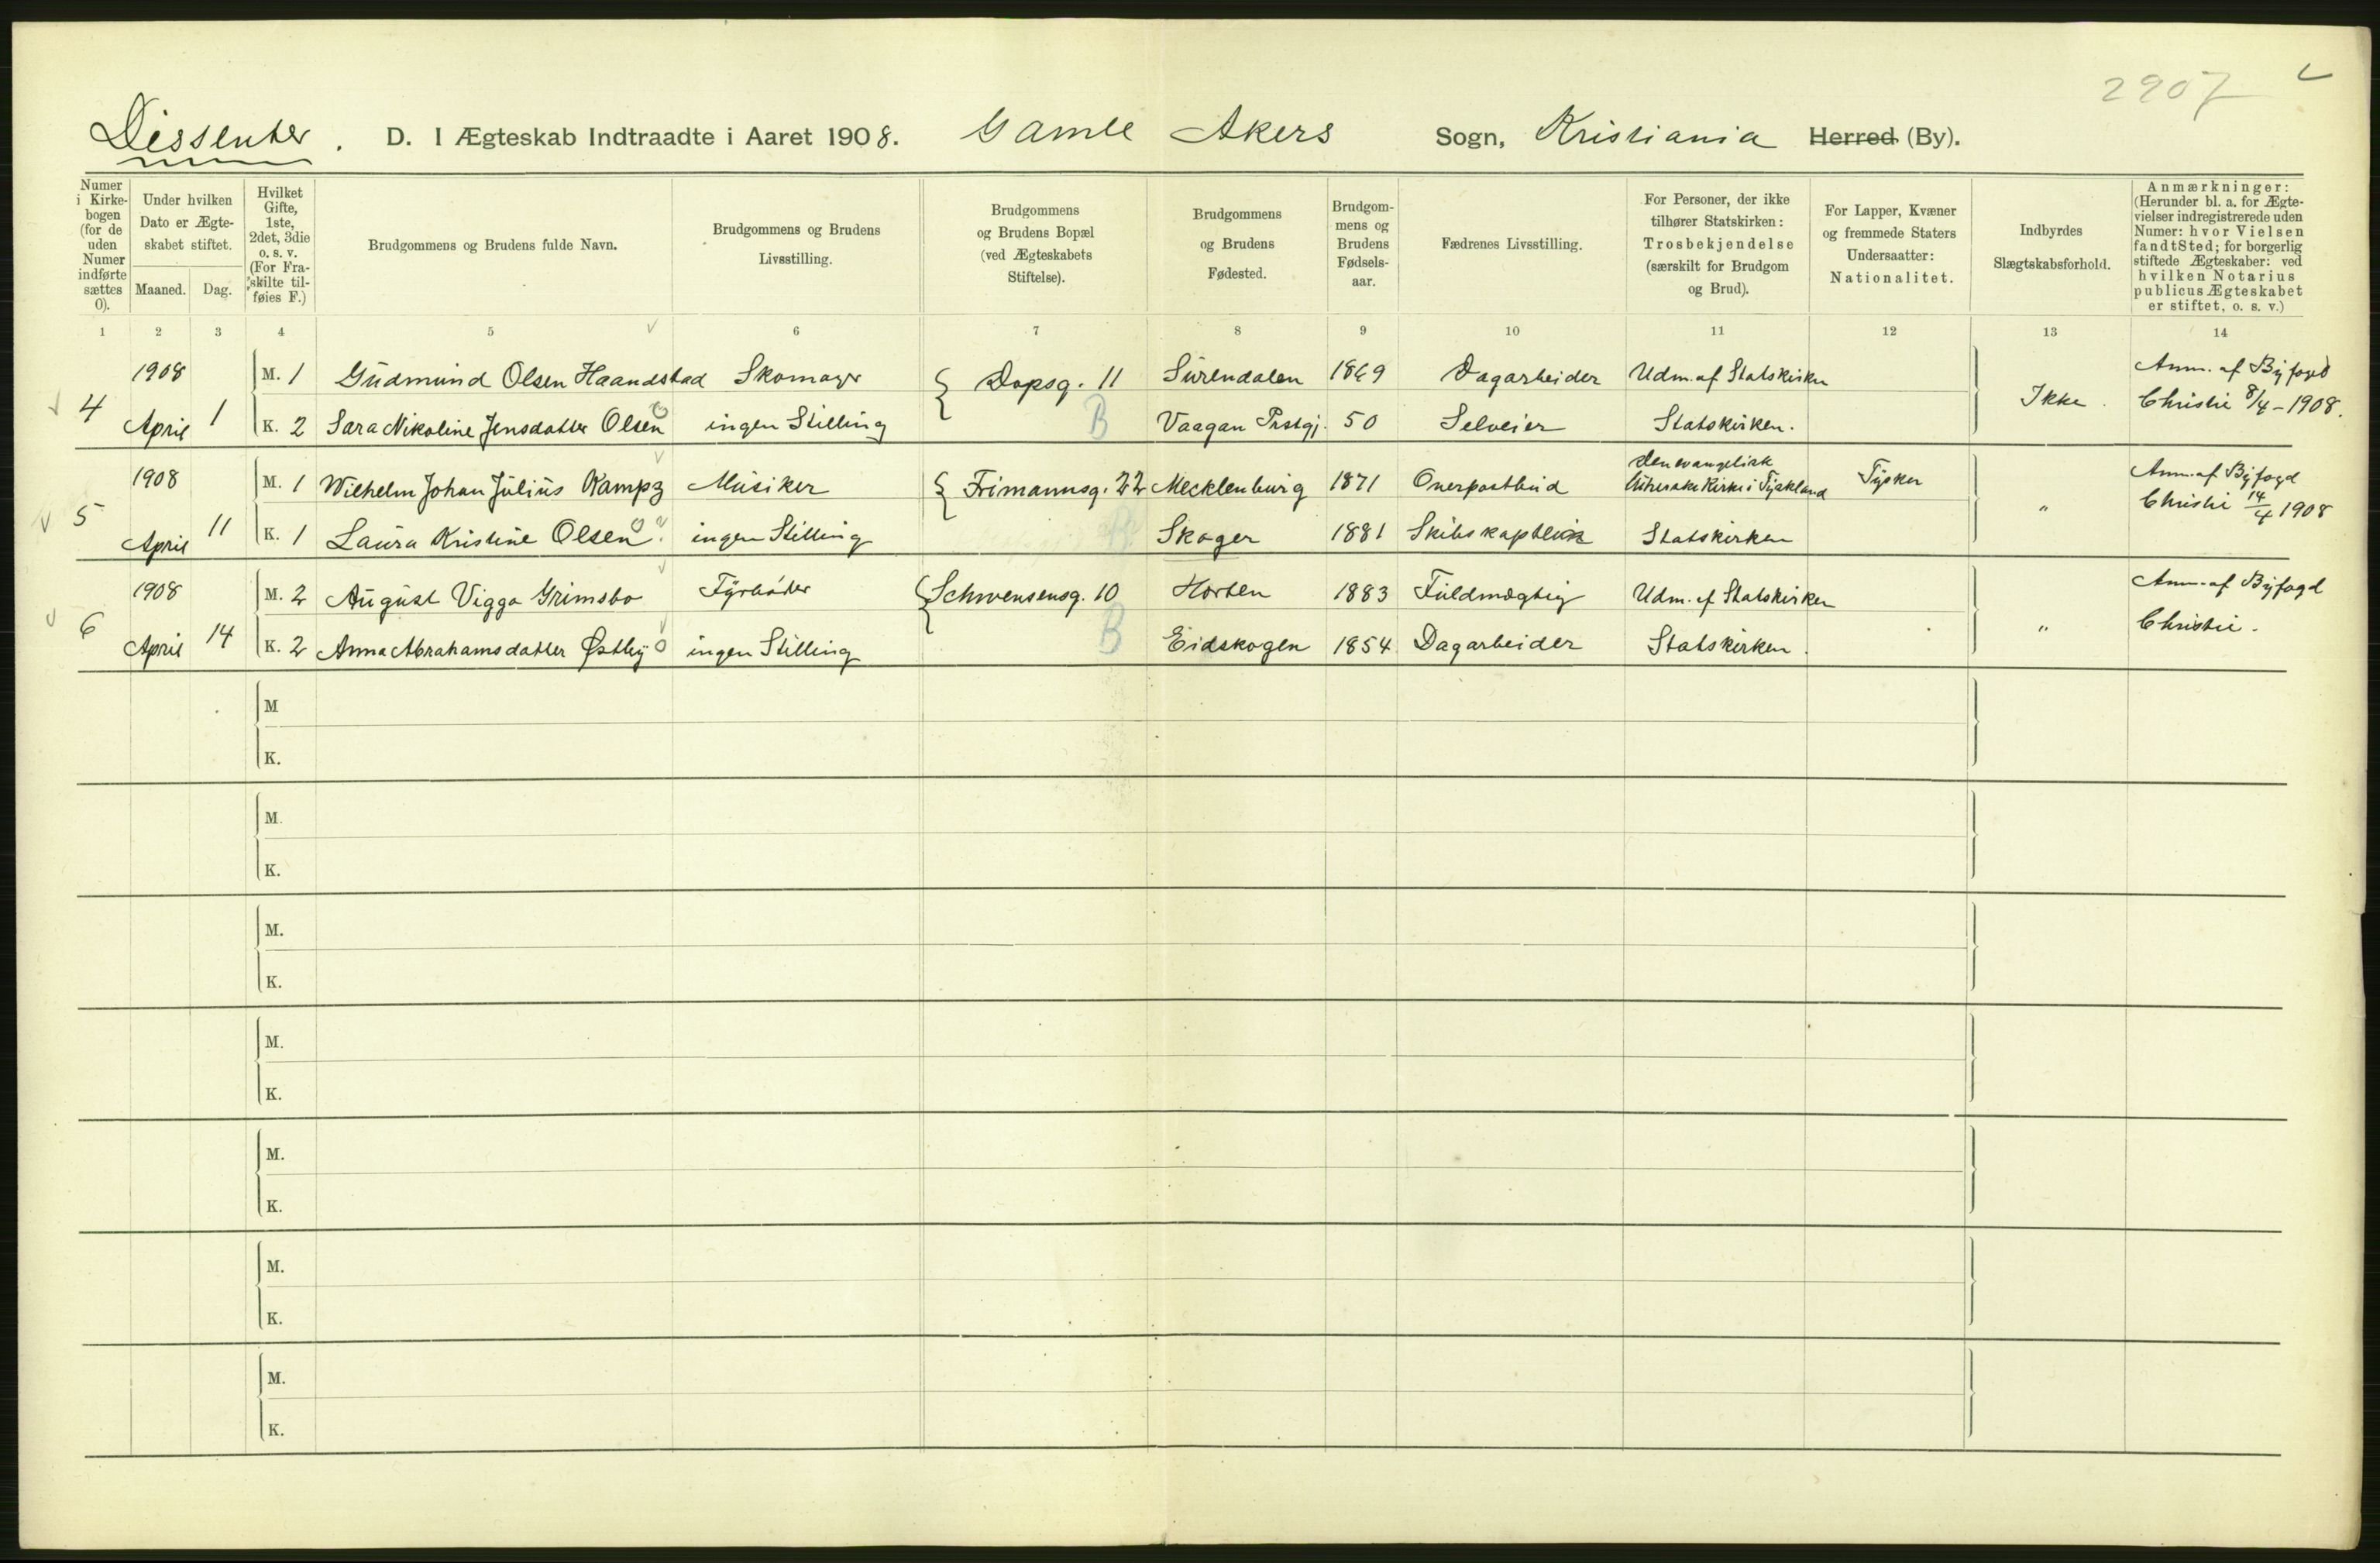 2907
Dissenter. D. I Ægteskab Indtraadte i Aaret 1908. Gamle Akers Sogn, Kristiania Herred (By).
Numer i Kirkebogen (for de uden Numer indførte sættes 0).
Under hvilken Dato er Ægteskabet stiftet.
Maaned. Dag.
Hvilket Gifte, 1ste, 2det, 3die o. s. v. (For Fraskilte tilføies F.)
Brudgommens og Brudens fulde Navn.
Brudgommens og Brudens Livsstilling.
Brudgommens og Brudens Bopæl (ved Ægteskabets Stiftelse).
Brudgommens og Brudens Fødested.
Brudgommens og Brudens Fødselsaar.
Fædrenes Livsstilling.
For Personer, der ikke tilhører Statskirken: Trosbekjendelse (særskilt for Brudgom og Brud).
For Lapper, Kvæner og fremmede Staters Undersaatter: Nationalitet.
Indbyrdes Slægtskabsforhold.
Anmærkninger: (Herunder bl. a. for Ægtevielser indregistrerede uden Numer: hvor Vielsen fandt Sted; for borgerlig stiftede Ægteskaber: ved hvilken Notarius publicus Ægteskabet er stiftet, o. s. v.)
1 2 3 4 5 6 7 8 9 10 11 12 13 14
1908 M. 1 Gudmund Olsen Haandstad Skomager Dopsg. 11 Surendalen 1869 Dagarbeider Udm. af Statskirken Anm. af Byfogd
4 April 1 K. 2 Sara Nikoline Jensdatter Olsen ingen Stilling B Vaagan Prstgj. 50 Selveier Statskirken. Ikke Christie 8/4-1908.
1908 M. 1 Wilhelm Johan Julius Kampz Musiker Frimannsg. 22 Mecklenburg 1871 Overpostbud Den evangelisk lutherske Kirke i Tyskland Tysker Anm. af Byfogd
5 April 11 K. 1 Laura Kristine Olsen ingen Stilling Skoger 1881 Skibskaptein Statskirken " Christie 14/4 1908
1908 M. 2 August Viggo Grimsbo Fyrbøder Schwensensg. 10 Horten 1883 Fuldmægtig Udm. af Statskirken Anm. af Byfogd
6 April 14 K. 2 Anna Abrahamsdatter Østby ingen Stilling B Eidskogen 1854 Dagarbeider Statskirken. " Christie.
M
K.
M.
K.
M.
K.
M.
K.
M.
K.
M.
K.
M.
K.